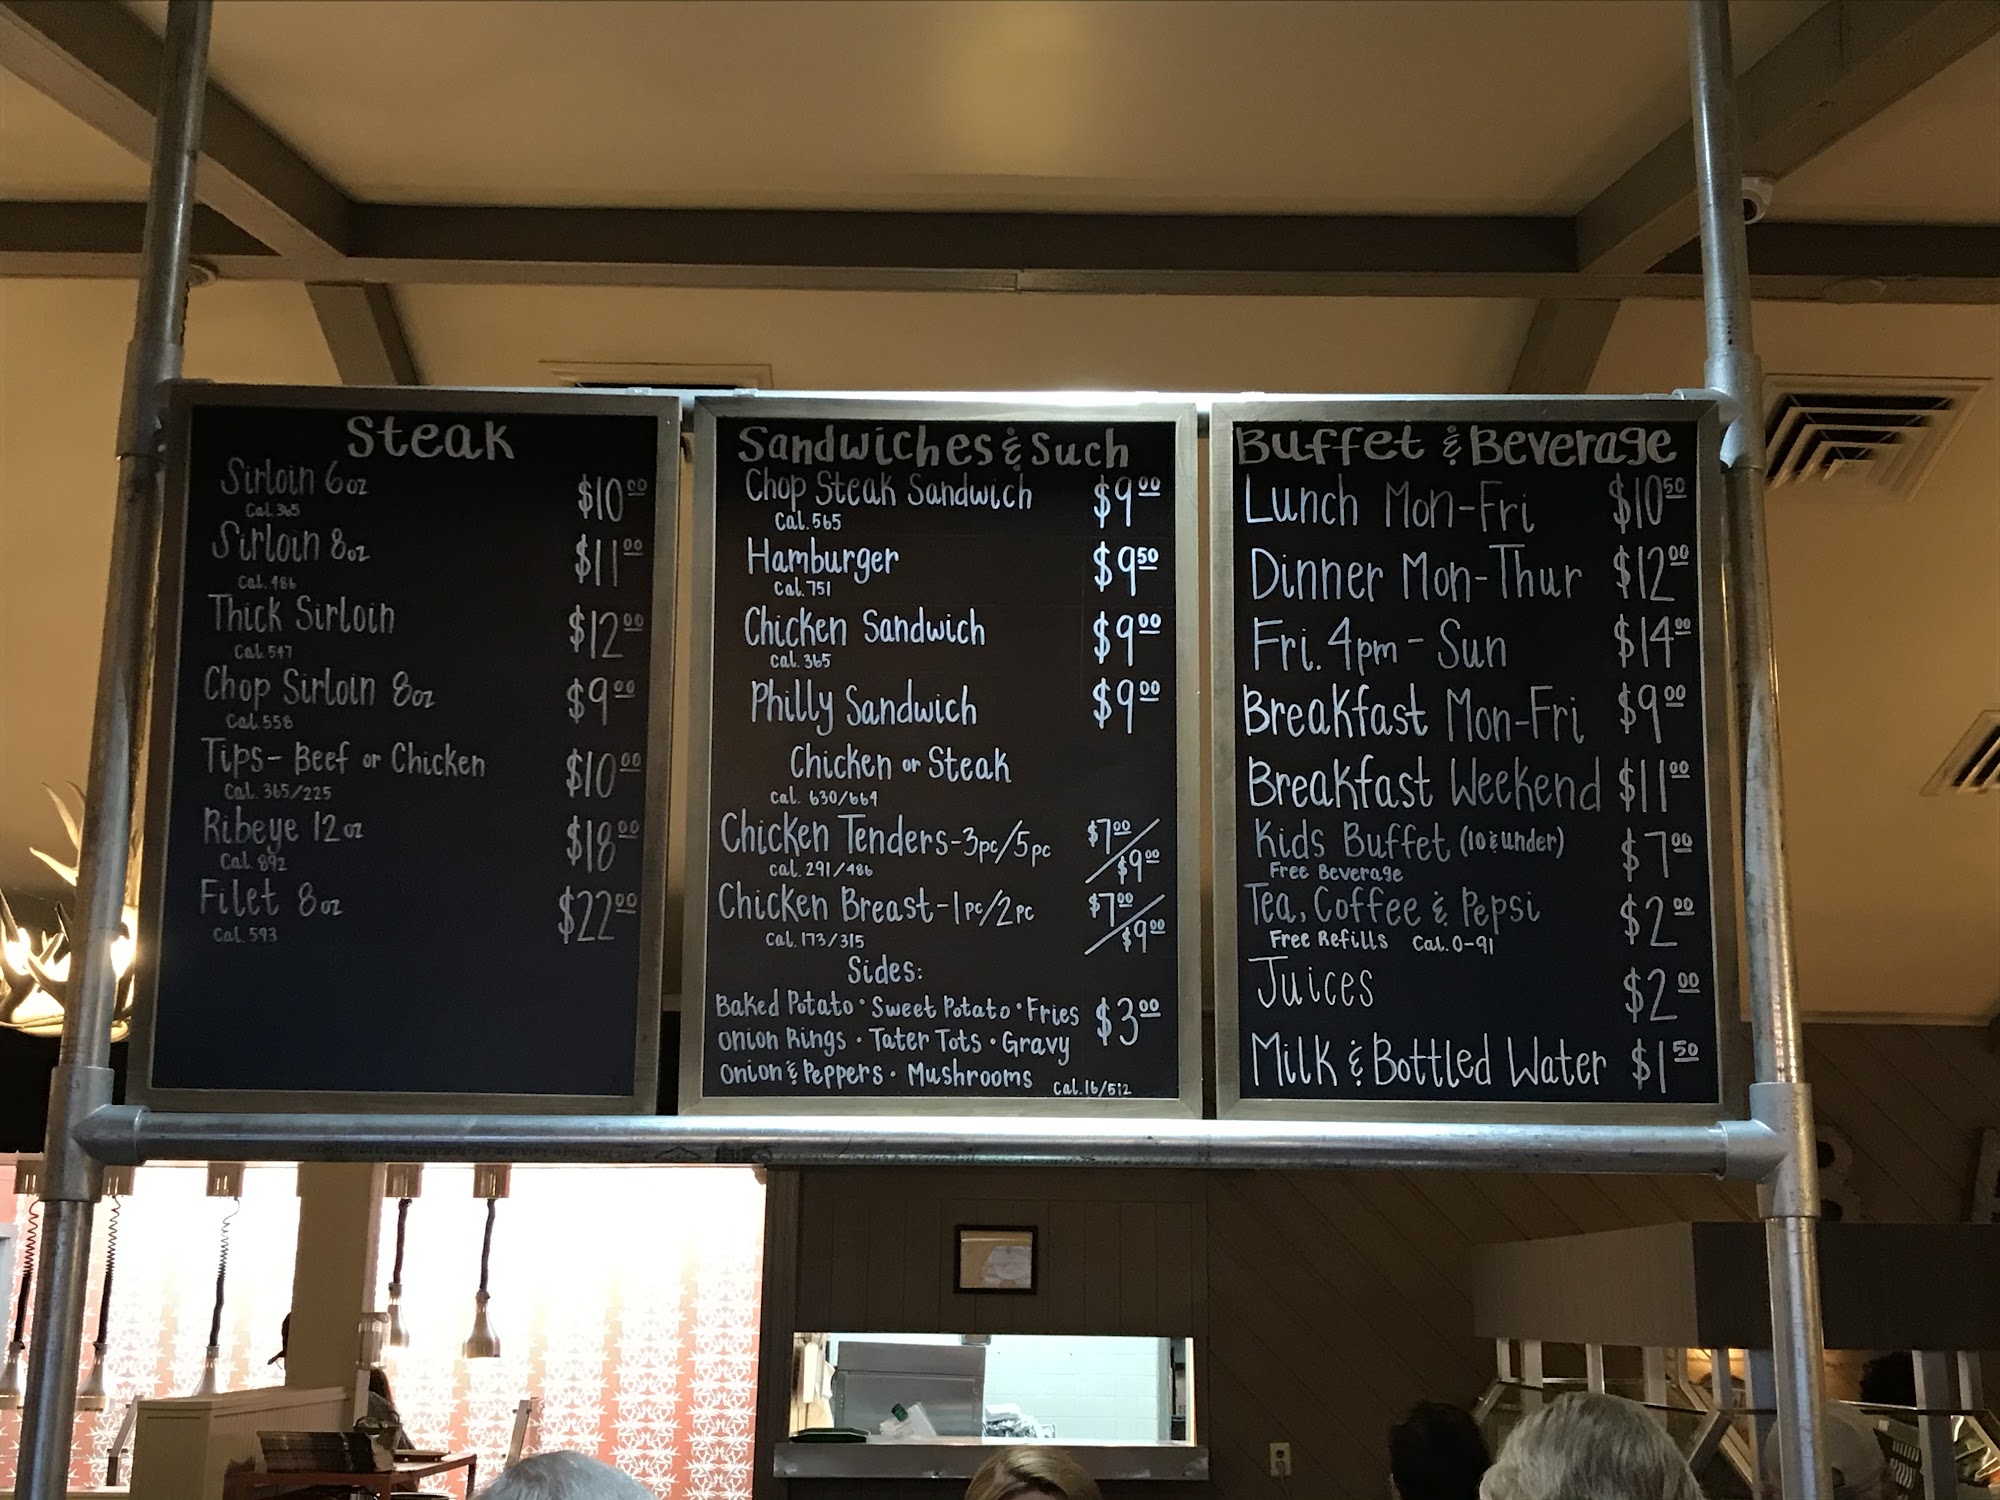 Steak
Sirloin 6oz $10.00
Cal. 365
Sirloin 8oz $11.00
Cal. 486
Thick Sirloin $12.00
Cal. 547
Chop Sirloin 8oz $9.00
Cal. 558
Tips- Beef or Chicken $10.00
Cal. 365/225
Ribeye 12oz $18.00
Cal. 892
Filet 8oz $22.00
Cal. 593
Sandwiches & Such
Chop Steak Sandwich $9.00
Cal. 565
Hamburger $9.50
Cal. 751
Chicken Sandwich $9.00
Cal. 365
Philly Sandwich $9.00
Chicken or Steak
Cal. 630/664
Chicken Tenders-3pc/5pc $7.00/$9.00
Cal. 291/486
Chicken Breast-1pc/2pc $7.00/$9.00
Cal. 173/315
Sides:
Baked Potato · Sweet Potato · Fries $3.00
Onion Rings · Tater Tots · Gravy
Onion & Peppers · Mushrooms Cal. 16/512
Buffet & Beverage
Lunch Mon-Fri $10.50
Dinner Mon-Thur $12.00
Fri. 4pm - Sun $14.00
Breakfast Mon-Fri $9.00
Breakfast Weekend $11.00
Kids Buffet (10 & under) $7.00
Free Beverage
Tea, Coffee & Pepsi $2.00
Free Refills Cal. 0-91
Juices $2.00
Milk & Bottled Water $1.50